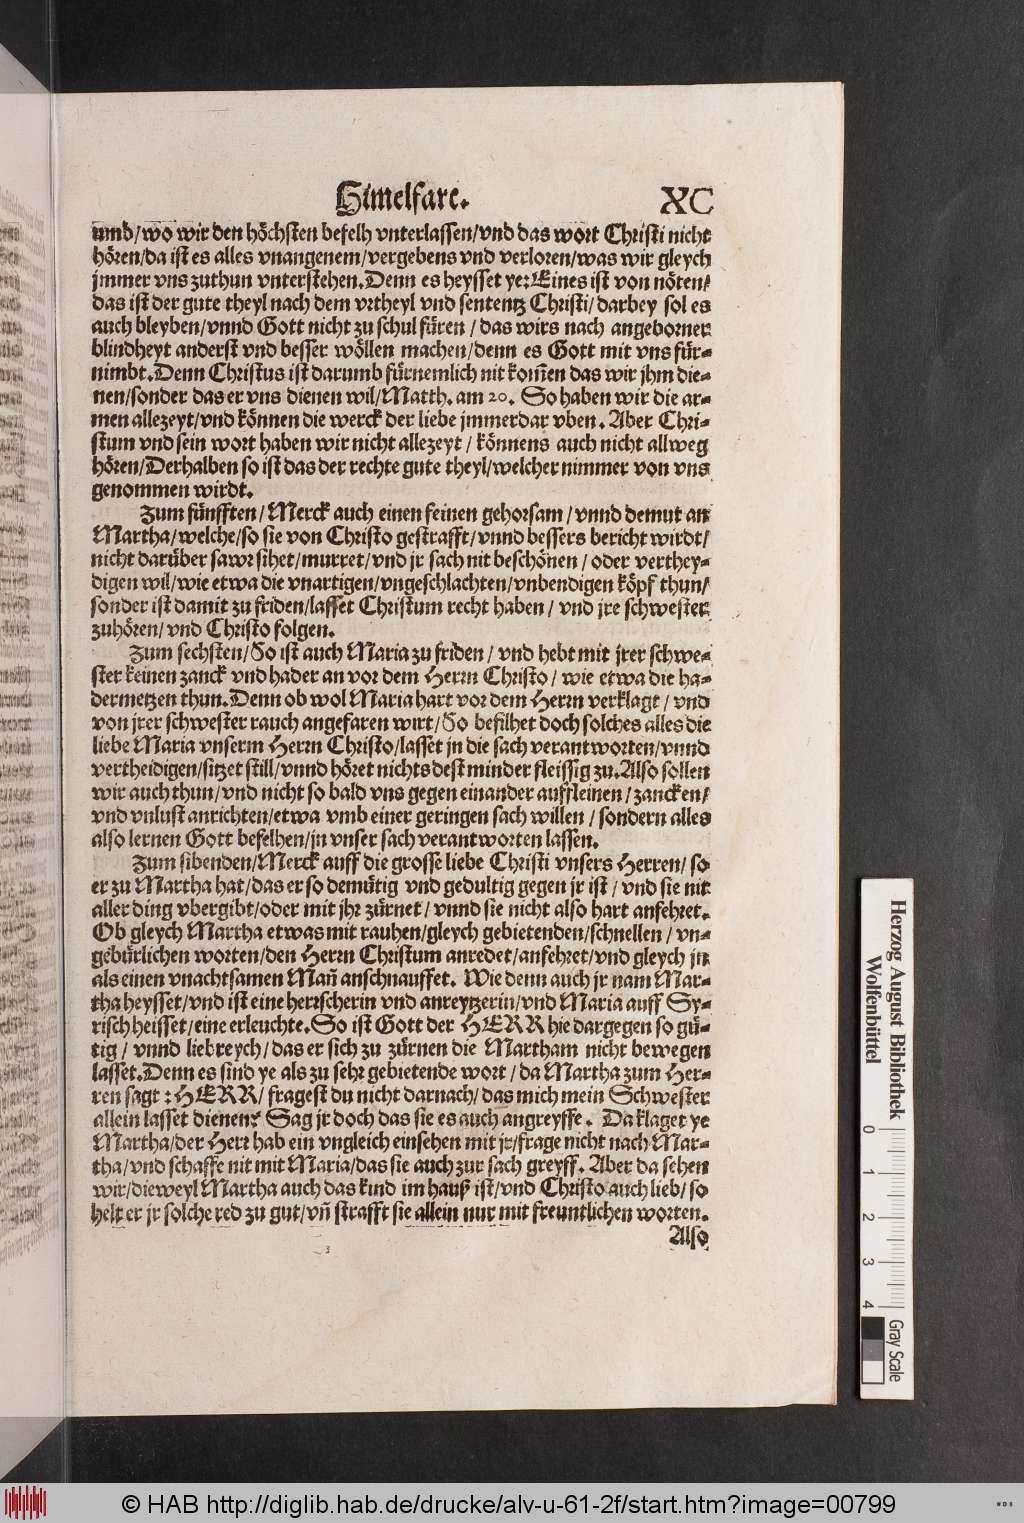 Himelfart. XC
umb/wo wir den höchsten befelh vnterlassen/vnd das wort Christi nicht
hören/da ist es alles vnangenem/vergebens vnd verloren/was wir gleych
jmmer vns zuthun vnterstehen. Denn es heysset ye: Eines ist von nöten/
das ist der gute theyl nach dem vrtheyl vnd sententz Christi/darbey sol es
auch bleyben/vnnd Gott nicht zu schul füren/das wirs nach angeborner
blindheyt anderst vnd besser wöllen machen/denn es Gott mit vns für-
nimbt. Denn Christus ist darumb fürnemlich nit kom̃en das wir jhm die-
nen/sonder das er vns dienen wil/Matth. am 20. So haben wir die ar-
men allezeyt/vnd können die werck der liebe jmmerdar vben. Aber Chri-
stum vnd sein wort haben wir nicht allezeyt/könnens auch nicht allweg
hören/Derhalben so ist das der rechte gute theyl/welcher nimmer von vns
genommen wirdt.
Zum fünfften/Merck auch einen feinen gehorsam/vnnd demut an
Martha/welche/so sie von Christo gestrafft/vnnd bessers bericht wirdt/
nicht darüber sawr sihet/murret/vnd jr sach nit beschönen/oder verthey-
digen wil/wie etwa die vnartigen/vngeschlachten/vnbendigen köpf thun/
sonder ist damit zu friden/lasset Christum recht haben/vnd jre schwester
zuhören/vnd Christo folgen.
Zum sechsten/So ist auch Maria zu friden/vnd hebt mit jrer schwe-
ster keinen zanck vnd hader an vor dem Herrn Christo/wie etwa die ha-
dermetzen thun. Denn ob wol Maria hart vor dem Herrn verklagt/vnd
von jrer schwester rauch angefaren wirt/So befilhet doch solches alles die
liebe Maria vnserm Herrn Christo/lasset jn die sach verantworten/vnnd
vertheidigen/sitzet still/vnnd höret nichts dest minder fleissig zu. Also sollen
wir auch thun/vnd nicht so bald vns gegen einander auffleinen/zancken/
vnd vnlust anrichten/etwa vmb einer geringen sach willen/sondern alles
also lernen Gott befelhen/jn vnser sach verantworten lassen.
Zum sibenden/Merck auff die grosse liebe Christi vnsers Herren/so
er zu Martha hat/das er so demütig vnd gedultig gegen jr ist/vnd sie nit
aller ding vbergibt/oder mit jhr zürnet/vnnd sie nicht also hart anfehret.
Ob gleych Martha etwas mit rauhen/gleych gebietenden/schnellen/vn-
gebürlichen worten/den Herrn Christum anredet/anfehret/vnd gleych jn
als einen vnachtsamen Mañ anschnauffet. Wie denn auch jr nam Mar-
tha heysset/vnd ist eine herrscherin vnd anreytzerin/vnd Maria auff Sy-
risch heisset/eine erleuchte. So ist Gott der HERR hie dargegen so gü-
tig/vnnd liebreych/das er sich zu zürnen die Martham nicht bewegen
lasset. Denn es sind ye als zu sehr gebietende wort/da Martha zum Her-
ren sagt: HERR/fragest du nicht darnach/das mich mein Schwester
allein lasset dienen? Sag jr doch das sie es auch angreyffe. Da klaget ye
Martha/der Herr hab ein vngleich einsehen mit jr/frage nicht nach Mar-
tha/vnd schaffe nit mit Maria/das sie auch zur sach greyff. Aber da sehen
wir/dieweyl Martha auch das kind im hauß ist/vnd Christo auch lieb/so
helt er jr solche red zu gut/vñ strafft sie allein nur mit freuntlichen worten.
Also
Herzog August Bibliothek
Wolfenbüttel
0 1 2 3 4
Gray Scale
© HAB http://diglib.hab.de/drucke/alv-u-61-2f/start.htm?image=00799